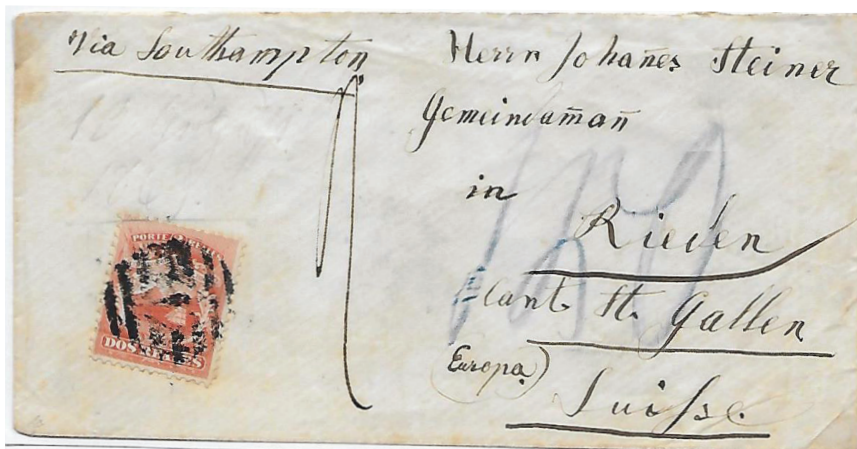 Via Southampton.
Herrn Johañes Steiner
Gemeindam̄añ
in
Rieden
Cant. St. Gallen
(Europa)
Suisse.
150
PORTE
DOS REALES